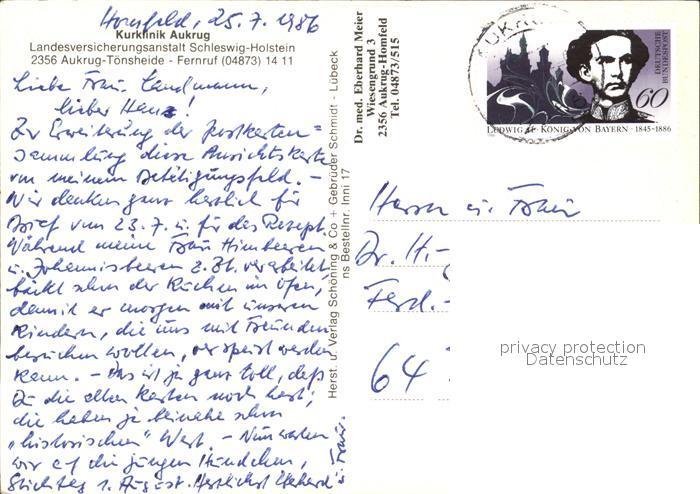 Homfeld, 25.7.1986
Kurklinik Aukrug
Landesversicherungsanstalt Schleswig-Holstein
2356 Aukrug-Tönsheide - Fernruf (04873) 14 11
Liebe Frau Landmann,
lieber Hans!
Zur Erweiterung der Postkarten=
sammlung diese Ansichtskarte
von meinem Betätigungsfeld. -
Wir danken ganz herzlich für
Brief vom 23.7. u. für das Rezept.
Während meine Frau Himbeeren
u. Johannisbeeren z. Zt. verarbeitet,
bäckt schon der Kuchen im Ofen,
damit er morgen mit unseren
Kindern, die uns mit Freunden
besuchen wollen, verspeist werden
kann. - Das ist ja ganz toll, daß
Du die alten Karten noch hast,
die haben ja beinahe schon
„historischen" Wert. - Nun warten
wir auf die jungen Hündchen,
Stichtag 1. August. Herzlichst Eberhard's
Herst. u. Verlag Schöning & Co + Gebrüder Schmidt - Lübeck
ns Bestellnr. Inni 17
Dr. med. Eberhard Meier
Wiesengrund 3
2356 Aukrug-Homfeld
Tel. 04873/515
AUKRUG
DEUTSCHE
BUNDESPOST
60
LUDWIG II. · KÖNIG VON BAYERN · 1845-1886
Herrn u. Frau
Dr. H.-
Ferd.-
64
privacy protection
Datenschutz